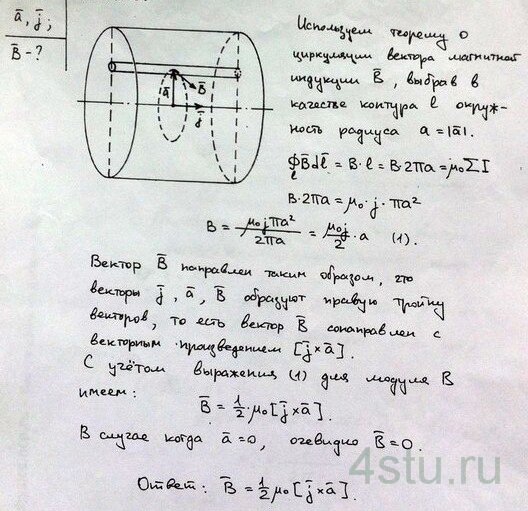 ā, j̄;
B̄ - ?
ā
B̄
j̄
Используем теорему о
циркуляции вектора магнитной
индукции B̄, выбрав в
качестве контура l окруж-
ность радиуса a = |ā|.
∮ₗ B̄dl̄ = B·l = B·2πa = μ₀ΣI
B·2πa = μ₀·j·πa²
B = μ₀jπa²/2πa = μ₀j/2 · a (1).
Вектор B̄ направлен таким образом, что
векторы j̄, ā, B̄ образуют правую тройку
векторов, то есть вектор B̄ сонаправлен с
векторным произведением [j̄×ā].
С учётом выражения (1) для модуля B
имеем:
B̄ = 1/2·μ₀[j̄×ā].
В случае когда ā=0, очевидно B̄=0.
4stu.ru
Ответ: B̄ = 1/2 μ₀[j̄×ā].